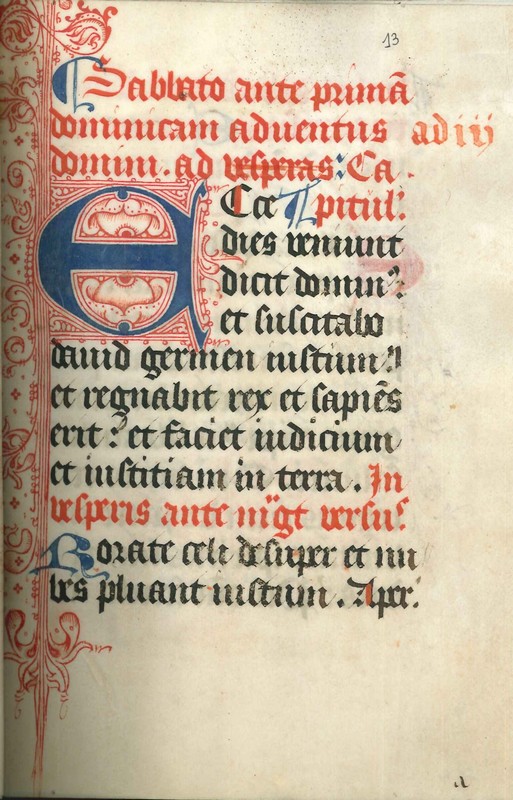 13
Sabbato ante primā
dominicam aduentus ad iij
domini. ad vesperas: Ca.
Ecce pitul᾽:
dies veniunt
dicit domin᾽:
et suscitabo
dauid germen iustum:
et regnabit rex et sapiēs
erit: et faciet iudicium
et iustitiam in terra. In
vesperis ante m̄gt versu᾽:
Rorate celi desuper et nu
bes pluant iustum. Aper: